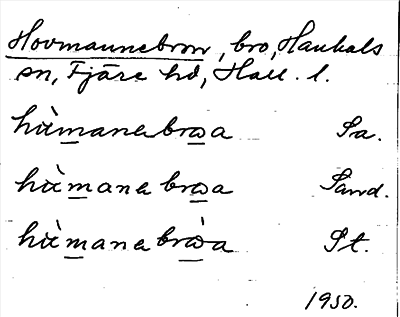 Hovmannebron, bro, Hanhals
sn, Fjäre hd, Hall. l.
hù̀manabrωa Sa.
hù̀mana brωa Sand.
hù̀manabrὼa St.
1950.